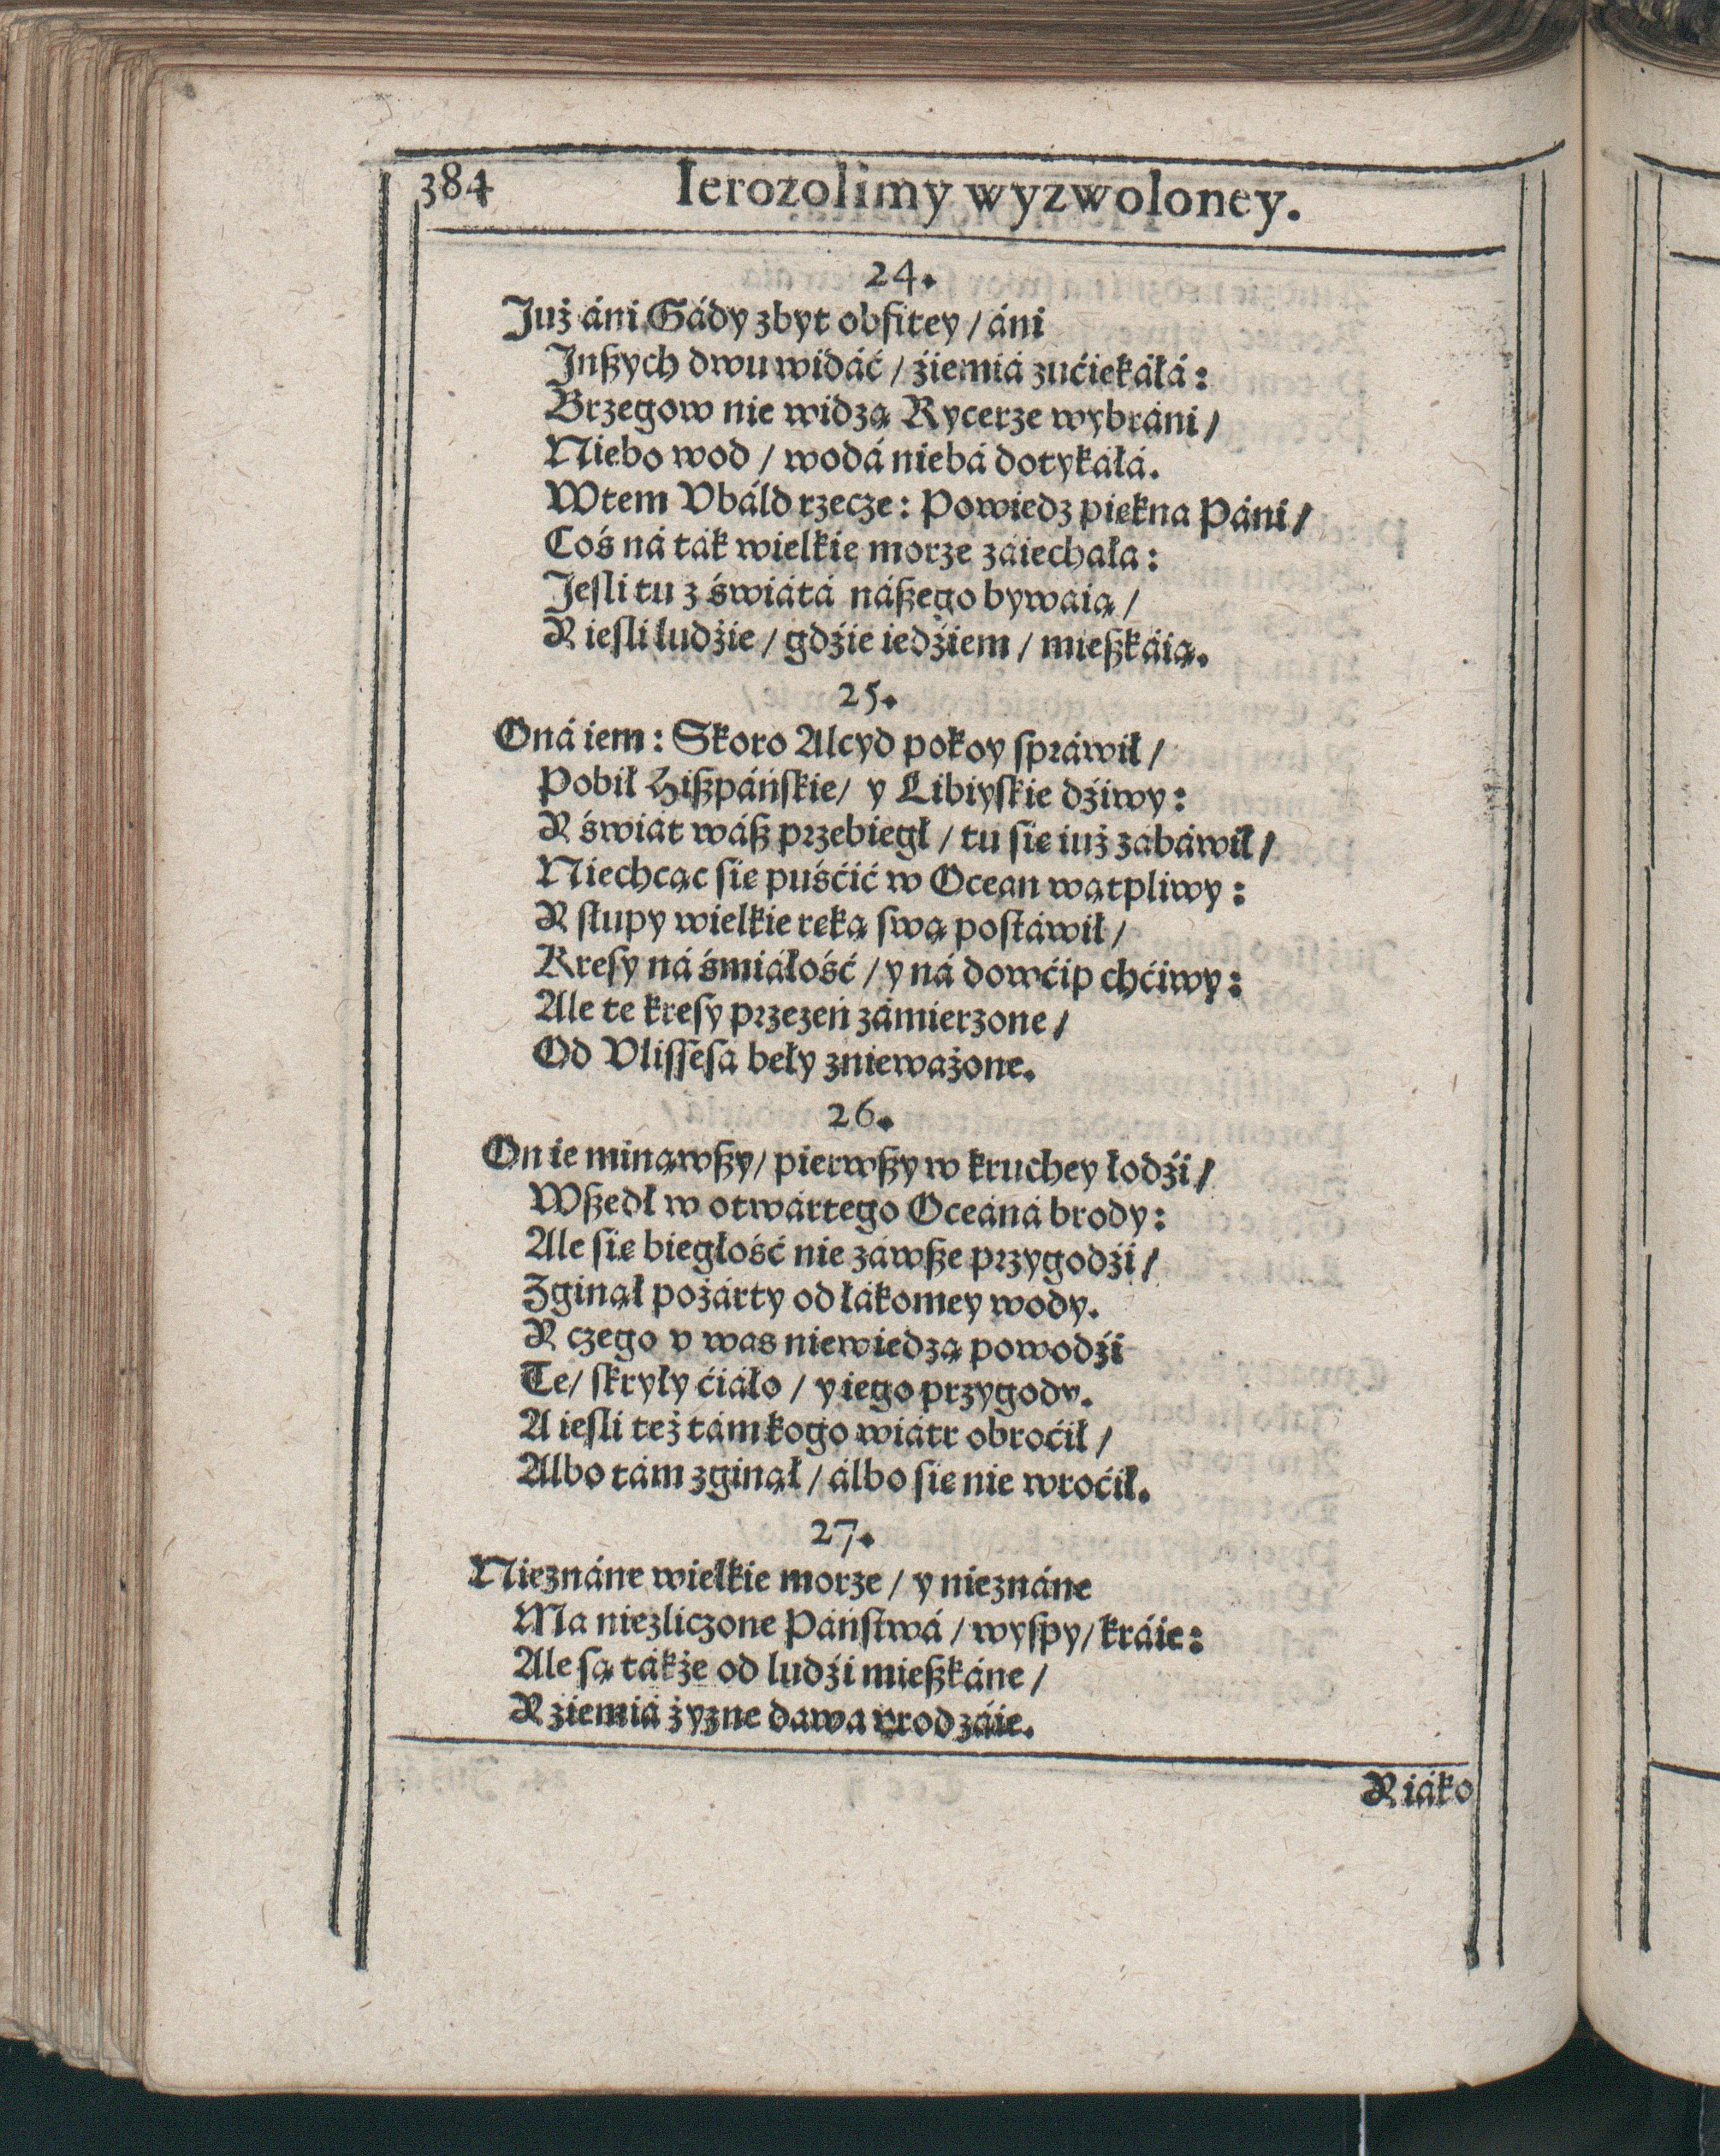 384 Ierozolimy wyzwoloney.
24.
Już áni Gády zbyt obfitey / áni
Inßych dwu widáć / źiemiá zućiekáłá:
Brzegow nie widzą Rycerze wybráni /
Niebo wod / wodá niebá dotykáłá.
Wtem Vbáld rzecze: Powiedz piękna Páni /
Coś ná ták wielkie morze záiecháła:
Ieſli tu z świátá náßego bywáią /
A ieſli ludźie / gdźie iedźiem / mießkáią.
25.
Oná iem: Skoro Alcyd pokoy ſpráwił /
Pobił Hißpáńſkie / y Libiyſkie dźiwy:
A świát wáß przebiegł / tu ſię iuż zábáwił /
Niechcąc ſię puśćić w Ocean wątpliwy:
A ſłupy wielkie ręką ſwą poſtáwił /
Kreſy ná śmiáłość / y ná dowćip chćiwy:
Ale te kreſy przezeń zámierzone /
Od Vliſſeſá beły znieważone.
26.
On ie minąwßy / pierwßy w kruchey łodźi /
Wßedł w otwártego Oceáná brody:
Ale ſię biegłość nie záwße przygodźi /
Zginął pożárty od łákomey wody.
A czego v was niewiedzą powodźi
Te / ſkryły ćiáło / y iego przygody.
A ieſli też tám kogo wiátr obroćił /
Albo tám zginął / álbo ſię nie wroćił.
27.
Nieznáne wielkie morze / y nieznáne
Ma niezliczone Páńſtwá / wyſpy / kráie:
Ale ſą tákże od ludźi mießkáne /
A źiemiá żyzne dawa vrodzáie.
A iáko